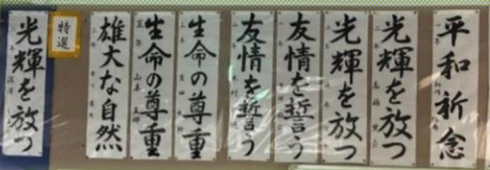 平和祈念
光輝を放つ
光輝を放つ
友情を誓う
友情を誓う
生命の尊重
生命の尊重
雄大な自然
特選
光輝を放つ